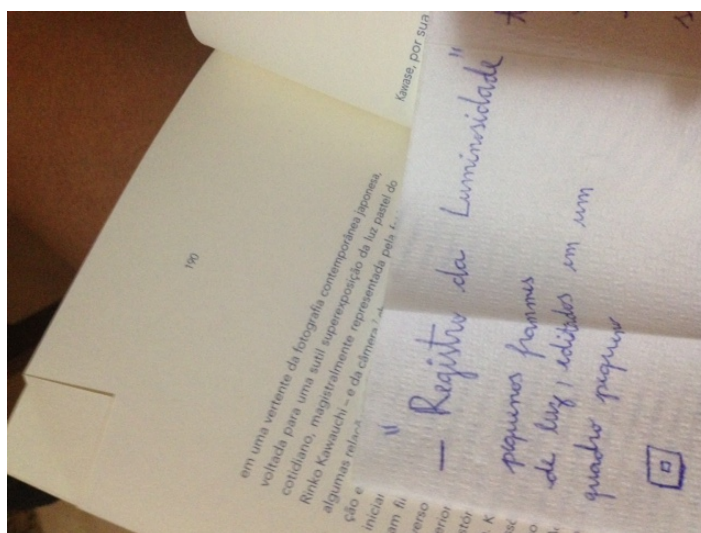 Kawase, por sua
190
em uma vertente da fotografia contemporânea japonesa,
voltada para uma sutil superexposição da luz pastel do
cotidiano, magistralmente representada pela
Rinko Kawauchi – e da câmera
algumas
ção e
iniciar
— "Registro da Luminosidade"
pequenos frammes
de luz, editados em um
quadro pequeno